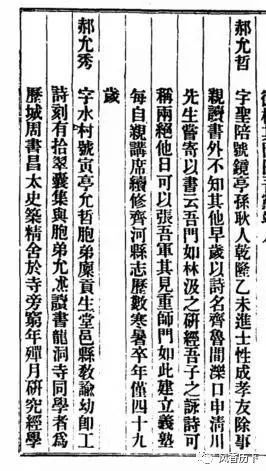 郝允哲
字聖陪號鏡亭孫耿人乾隆乙未進士性成孝友除事
親讀書外不知其他早歲以詩名齊魯間濼口申清川
先生嘗寄以書云吾門如林汲之硏經吾子之詠詩可
稱兩絕他日可以張吾軍其見重師門如此建立義塾
每自親講席續修齊河縣志歷數寒暑卒年僅四十九
歲
郝允秀
字水村號寅亭允哲胞弟廩貢生堂邑縣敎諭幼卽工
詩刻有拾翠囊集與胞弟允
讀書龍洞寺同學者爲
歷城周書昌太史築精舍於寺旁窮年殫月硏究經學
风香历下